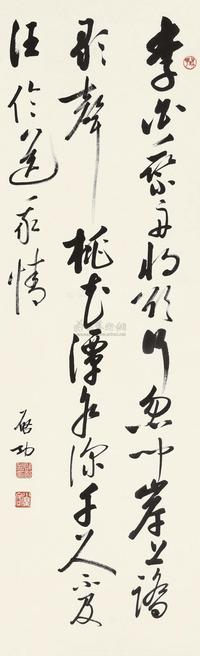 李白乘舟將欲行忽聞岸上踏
歌聲 桃花潭水深千尺不及
汪倫送我情
啟功